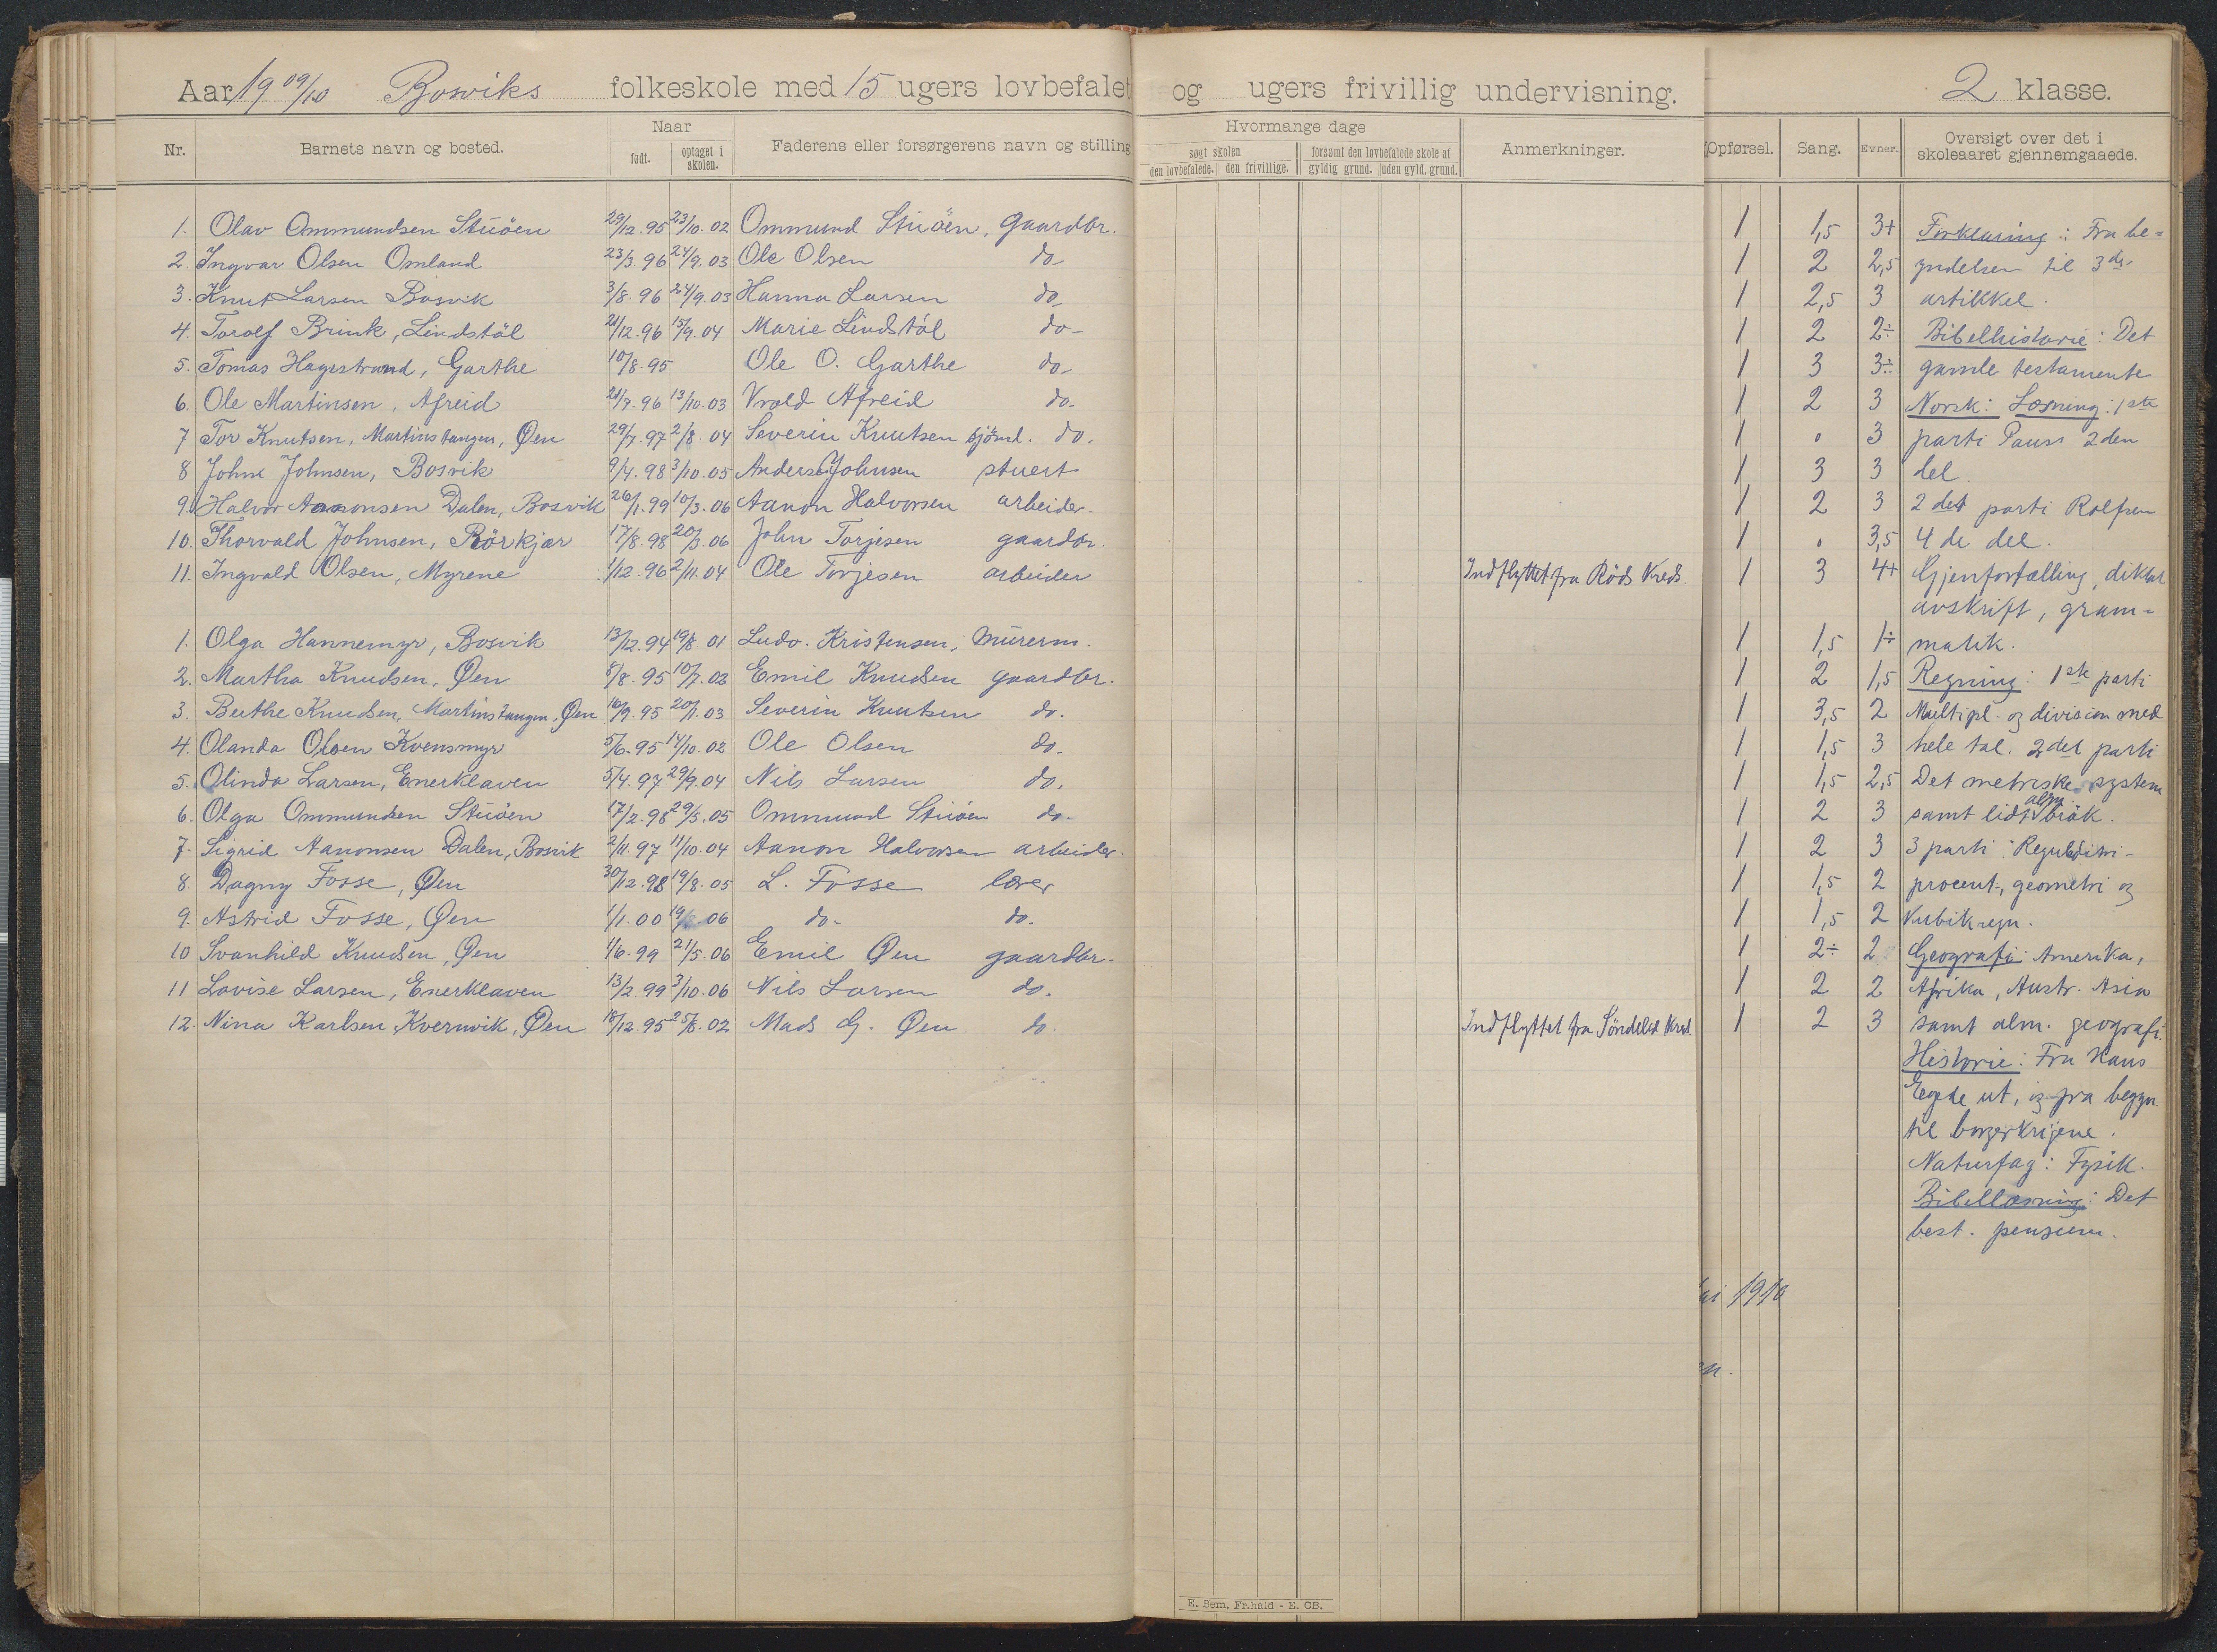 Aar 19 09/10 Bosviks folkeskole med 15 ugers lovbefalet og ugers frivillig undervisning. 2 klasse.
Nr. Barnets navn og bosted. Naar født. optaget i skolen. Faderens eller forsørgerens navn og stilling
Hvormange dage søgt skolen den lovbefalede. den frivillige. forsømt den lovbefalede skole af gyldig grund. uden gyld. grund. Anmerkninger.
Opførsel. Sang. Evner. Oversigt over det i skoleaaret gjennemgaaede.
1. Olav Ommundsen Stuöen 29/12.95 23/10.02 Ommund Stuöen, gaardbr. 1 1,5 3+ Forklaring: Fra be=
2. Ingvar Olsen Omland 23/3.96 24/9.03 Ole Olsen do- 1 2 2,5 gndelsen til 3die
3. Knut Larsen Bosvik 3/8.96 24/9.03 Hanna Larsen do- 1 2,5 3 artikkel.
4. Torolf Brink, Lindstöl 21/12.96 15/9.04 Marie Lindstöl do- 1 2 2÷ Bibelhistorie: Det
5. Tomas Hagestrand, Garthe 10/8.95 Ole O. Garthe do- 1 3 3÷ gamle testamente
6. Ole Martinsen, Afreid 21/7.96 13/10.03 Vrold Afreid do. 1 2 3 Norsk: Læsning: 1ste
7 Tor Knutsen, Martinstangen, Øen 29/7.97 2/8.04 Severin Knutsen sjömd. do. 1 0 3 parti Pauss 2den
8 Johne Johnsen, Bosvik 9/4.98 3/10.05 Anders Johnsen stuert 1 3 3 del.
9. Halvor Aanonsen Dalen, Bosvik 26/1.99 10/3.06 Aanon Halvorsen arbeider. 1 2 3 2det parti Rolfsen
10. Thorvald Johnsen, Rörkjær 17/8.98 20/3.06 John Torjesen gaardbr. 1 0 3,5 4de del.
11. Ingvald Olsen, Myrene 1/12.96 2/11.04 Ole Torjesen arbeider Indflyttet fra Röds Kreds. 1 3 4+ Gjenfortælling, diktat
avskrift, gram=
1. Olga Hannemyr, Bosvik 13/12.94 19/8.01 Ludv. Kristensen, Murerm. 1 1,5 1÷ matik.
2. Martha Knudsen, Øen 8/8.95 10/7.02 Emil Knudsen gaardbr. 1 2 1,5 Regning: 1ste parti
3. Berthe Knudsen, Martinstangen, Øen 16/9.95 20/1.03 Severin Knutsen do. 1 3,5 2 Multipl. og division med
4. Olanda Olsen Kvensmyr 5/6.95 14/10.02 Ole Olsen do. 1 1,5 3 hele tal. 2det parti
5. Olinda Larsen, Enerklaven 5/4.97 29/9.04 Nils Larsen do. 1 1,5 2,5 Det metriske system
6. Olga Ommundsen Stuöen 17/2.98 29/5.05 Ommund Stuöen do. 1 2 3 samt lidt alm. brök.
7. Sigrid Aanonsen Dalen, Bosvik 2/11.97 11/10.04 Aanon Halvorsen arbeider. 1 2 3 3 parti: Reguladitri-
8. Dagny Fosse, Øen 30/12.98 19/8.05 L. Fosse lærer 1 1,5 2 procent-, geometri og
9. Astrid Fosse, Øen 1/1.00 19/8.06 do- do. 1 1,5 2 Kubikregn.
10 Svanhild Knudsen, Øen 1/6.99 21/5.06 Emil Øen gaardbr. 1 2÷ 2 Geografi Amerika,
11 Lovise Larsen, Enerklaven 13/2.99 3/10.06 Nils Larsen do. 1 2 2 Afrika, Austr. Asia
12. Nina Karlsen, Kvernvik, Øen 18/12.95 25/8.02 Mads G. Øen do. Indflyttet fra Söndeled Kreds. 1 2 3 samt alm. geografi.
Historie: Fra Hans
Egede ut, og fra begyn.
til borgerkrigene.
Naturfag: Fysik.
Bibellæsning: Det
best. pensum.
1910
E. Sem, Fr.hald - E. CB.